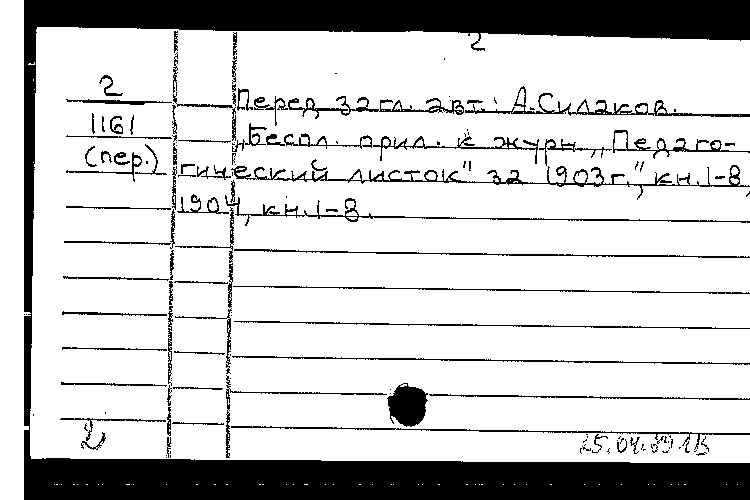 2
2
1161
(пер.)
Перед загл. авт.: А.Силаков.
„Беспл. прил. к журн. „Педаго-
гический листок" за 1903г.", кн.1-8,
1904, кн.1-8.
2
25.04.89